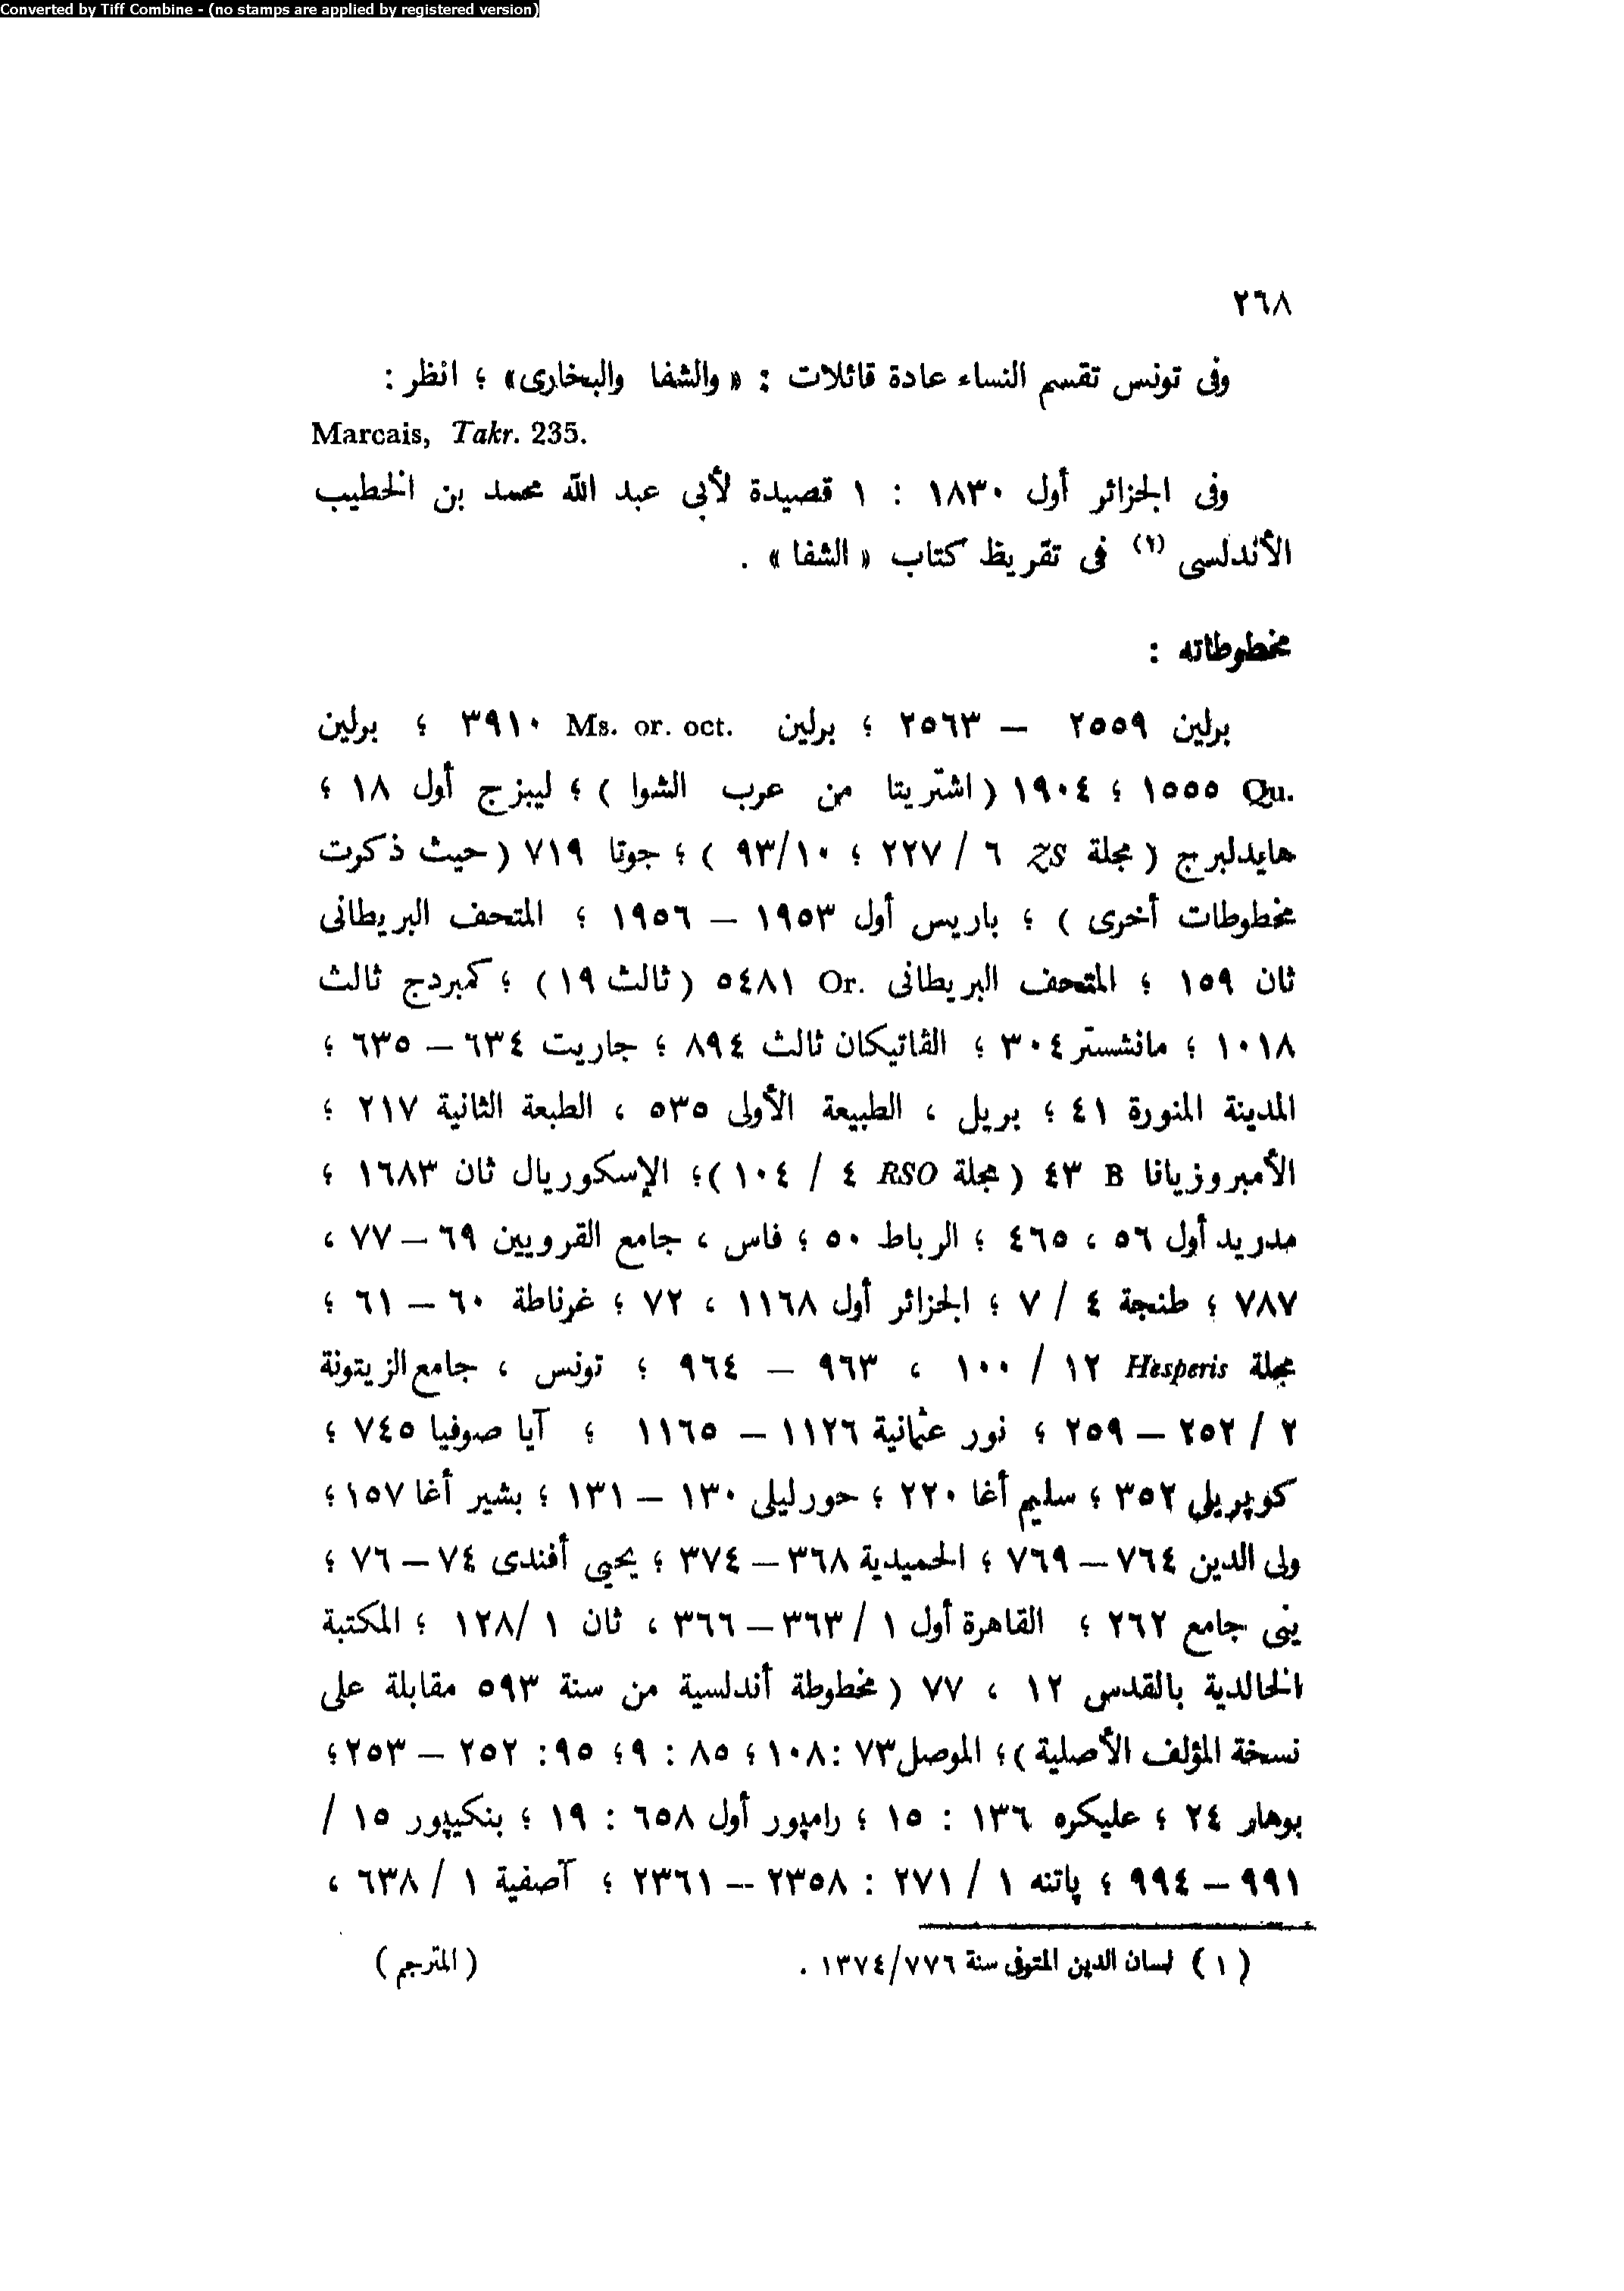 Converted by Tiff Combine - (no stamps are applied by registered version)
٢٦٨
وفى تونس تقسم النساء عادة قائلات : « والشفا والبخارى» ؛ انظر :
Marcais, Takr. 235.
وفى الجزائر أول ١٨٣٠ : ١ قصيدة لأبى عبد الله محمد بن الخطيب
الأندلسى (١) فى تقريظ كتاب « الشفا » .
مخطوطاته :
برلين ٢٥٥٩ – ٢٥٦٣ ؛ برلين Ms. or. oct. ٣٩١٠ ؛ برلين
Qu. ١٥٥٥ ؛ ١٩٠٤ ( اشتريتا من عرب الشوا ) ؛ ليبزج أول ١٨ ؛
هايدلبرج ( مجلة ZS ٦ / ٢٢٧ ؛ ٩٣/١٠ ) ؛ جوتا ٧١٩ ( حيث ذكرت
مخطوطات أخرى ) ؛ باريس أول ١٩٥٣ – ١٩٥٦ ؛ المتحف البريطانى
ثان ١٥٩ ؛ المتحف البريطانى Or. ٥٤٨١ ( ثالث ١٩ ) ؛ كمبردج ثالث
١٠١٨ ؛ مانشستر ٣٠٤ ؛ الڤاتيكان ثالث ٨٩٤ ؛ جاريت ٦٣٤ – ٦٣٥ ؛
المدينة المنورة ٤١ ؛ بريل ، الطبيعة الأولى ٥٣٥ ، الطبعة الثانية ٢١٧ ؛
الأمبروزيانا B ٤٣ ( مجلة RSO ٤ / ١٠٤ )؛ الإسكوريال ثان ١٦٨٣ ؛
مدريد أول ٥٦ ، ٤٦٥ ؛ الرباط ٥٠ ؛ فاس ، جامع القرويين ٦٩ – ٧٧ ،
٧٨٧ ؛ طنجة ٤ / ٧ ؛ الجزائر أول ١١٦٨ ، ٧٢ ؛ غرناطة ٦٠ – ٦١ ؛
مجلة Hesperis ١٢ / ١٠٠ ، ٩٦٣ – ٩٦٤ ؛ تونس ، جامع الزيتونة
٢ / ٢٥٢ – ٢٥٩ ؛ نور عثمانية ١١٢٦ – ١١٦٥ ؛ آيا صوفيا ٧٤٥ ؛
كوپريلى ٣٥٢ ؛ سليم أغا ٢٢٠ ؛ حورليلى ١٣٠ – ١٣١ ؛ بشير أغا ١٥٧ ؛
ولى الدين ٧٦٤ – ٧٦٩ ؛ الحميدية ٣٦٨ – ٣٧٤ ؛ يحيى أفندى ٧٤ – ٧٦ ؛
ينى جامع ٢٦٢ ؛ القاهرة أول ١ / ٣٦٣ – ٣٦٦ ، ثان ١ /١٢٨ ؛ المكتبة
الخالدية بالقدس ١٢ ، ٧٧ ( مخطوطة أندلسية من سنة ٥٩٣ مقابلة على
نسخة المؤلف الأصلية )؛ الموصل ٧٣ :١٠٨ ؛ ٨٥ : ٩؛ ٩٥: ٢٥٢ – ٢٥٣؛
بوهار ٢٤ ؛ عليكره ١٣٦ : ١٥ ؛ رامپور أول ٦٥٨ : ١٩ ؛ بنكيپور ١٥ /
٩٩١ – ٩٩٤ ؛ پاتنه ١ / ٢٧١ : ٢٣٥٨ – ٢٣٦١ ؛ آصفية ١ / ٦٣٨ ،
( ١ ) لسان الدين المتوفى سنة ١٣٧٤/٧٧٦ . ( المترجم )